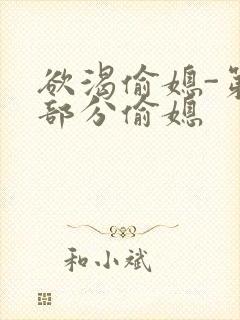 欲渴偷媳-第
部分偷媳
和小斌